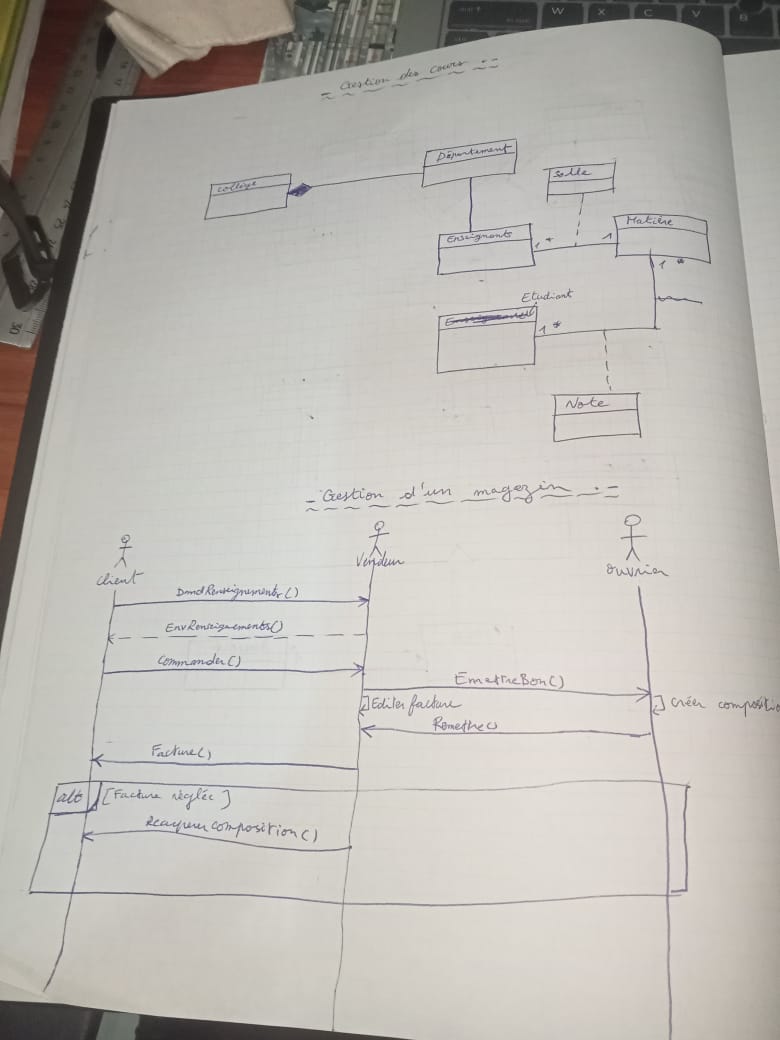 - Gestion des Cours -:=
Collège
Département
Salle
Enseignants
1 *
1
Matière
1 *
Etudiant
1 *
Note
- Gestion d'un magezin -:=
client
Vendeur
Ouvrier
DmdRenseignements()
EnvRenseignements()
Commander()
EmettreBon()
Editer facture
créer compositio
Remettre()
Facture()
alt [Facture réglée]
composition()
W X C V B
30